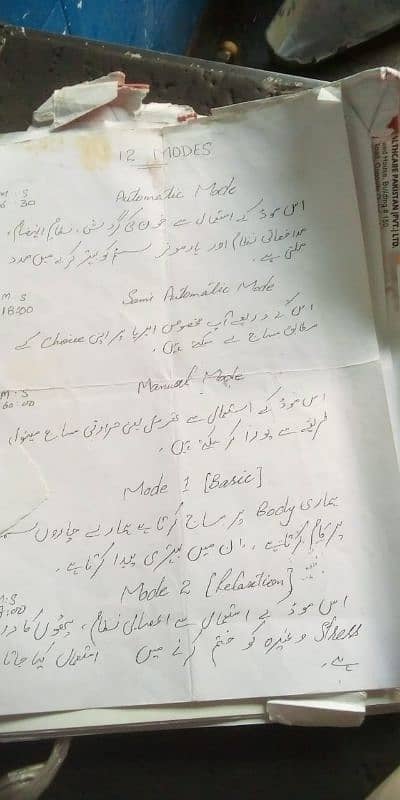 12 MODES
M : S
Automatic Mode
6 30
اس موڈ کے استعمال سے خون کی گردش، نظام انہضام،
مدافعاتی نظام اور ہارمونز سسٹم کو بہتر کرنے میں مدد
ملتی ہے۔
M : S
Semi Automatic Mode
18:00
اس کے ذریعے آپ مخصوص ایریا پر اپنی Choice کے
مطابق مساج لے سکتے ہیں۔
M : S
Manual Mode
60:00
اس موڈ کے استعمال سے یعنی حرارتی مساج مینول
طریقے سے پورا کر سکتے ہیں۔
Mode 1 [Basic]
ہماری Body پر مساج کرتا ہے ہمارے چاروں
پر کام کرتا ہے۔ ان میں بہتری پیدا کرتا ہے۔
Mode 2 [Relaxition]
M:S
اس موڈ کے استعمال سے اعصابی نظام، پٹھوں کا درد
Stress وغیرہ کو ختم کرنے میں استعمال کیا جاتا
ہے۔
HEALTHCARE PAKISTAN (PVT) LTD
House, Building # 150